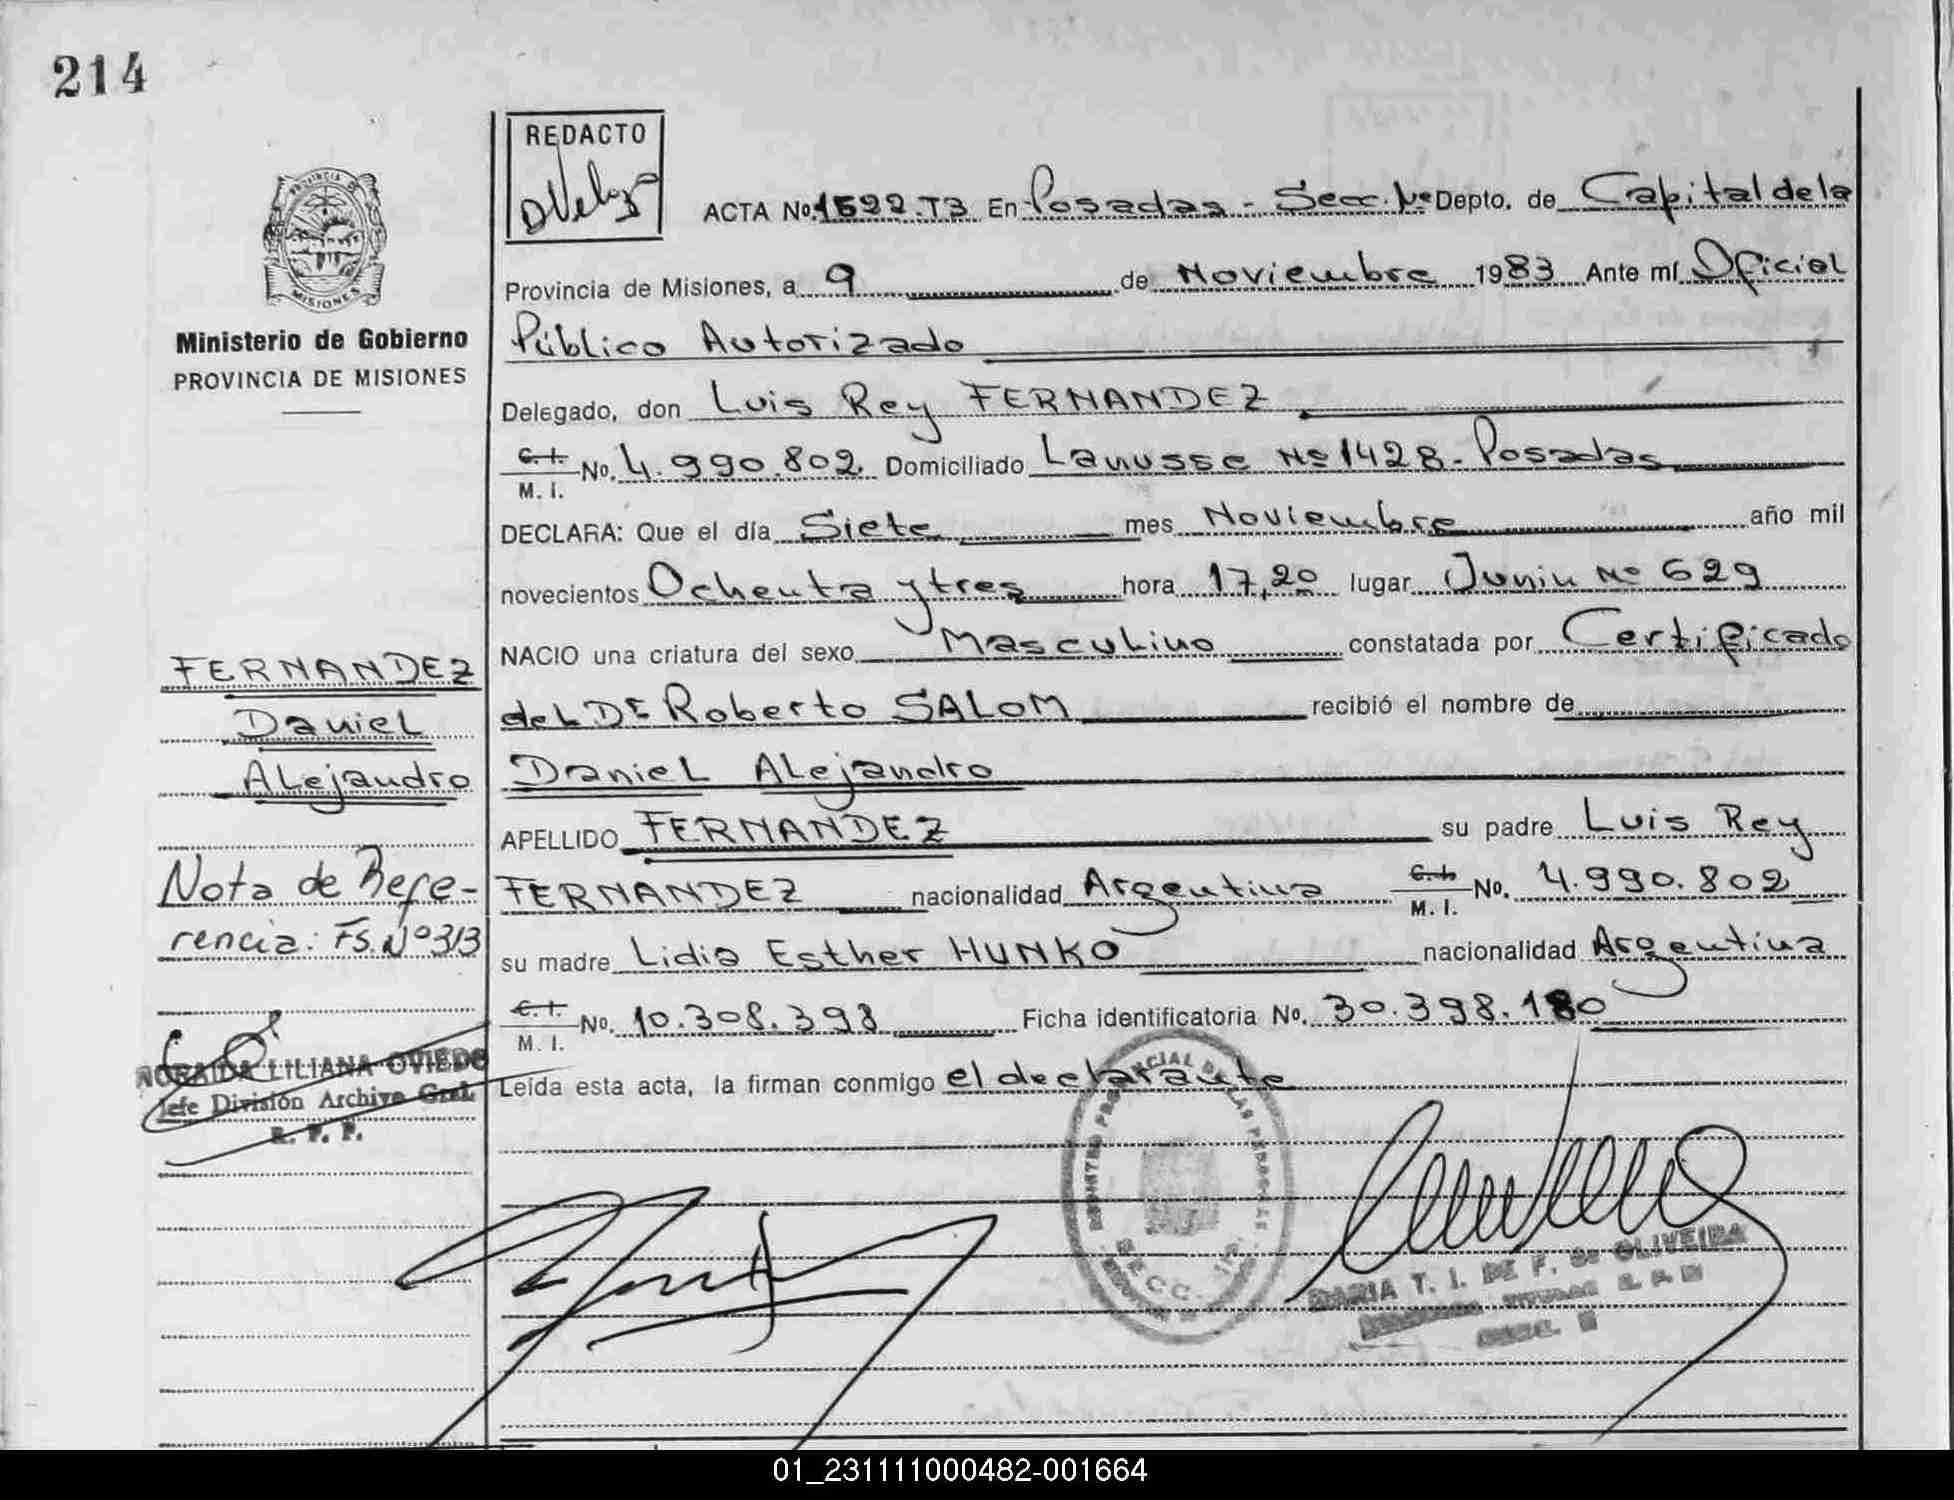 214
REDACTO
ACTA No. 1522.T3 En Posadas - Secc. 1ª Depto. de Capital de la
Provincia de Misiones, a 9 de Noviembre 1983 Ante mí Oficial
Ministerio de Gobierno
PROVINCIA DE MISIONES
Público Autorizado
Delegado, don Luis Rey FERNANDEZ
C. I.
M. I.
No. 4.990.802. Domiciliado Lanusse Nº 1428 - Posadas
DECLARA: Que el día Siete mes Noviembre año mil
novecientos Ochenta y tres hora 17,20 lugar Junín Nº 629
NACIO una criatura del sexo Masculino constatada por Certificado
del Dr Roberto SALOM recibió el nombre de
Daniel Alejandro
APELLIDO FERNANDEZ su padre Luis Rey
FERNANDEZ nacionalidad Argentina C. I. M. I. No. 4.990.802
su madre Lidia Esther HUNKO nacionalidad Argentina
C. I.
M. I.
No. 10.308.393 Ficha identificatoria No. 30.398.180
Leída esta acta, la firman conmigo el declarante
FERNANDEZ
Daniel
Alejandro
Nota de Refe-
rencia: Fs. Nº 313
LILIANA OVIEDO
Jefe División Archivo Gral.
R. P. P.
REGISTRO PROVINCIAL DE LAS PERSONAS
MARIA T. I. DE F. DE OLIVEIRA
01_231111000482-001664